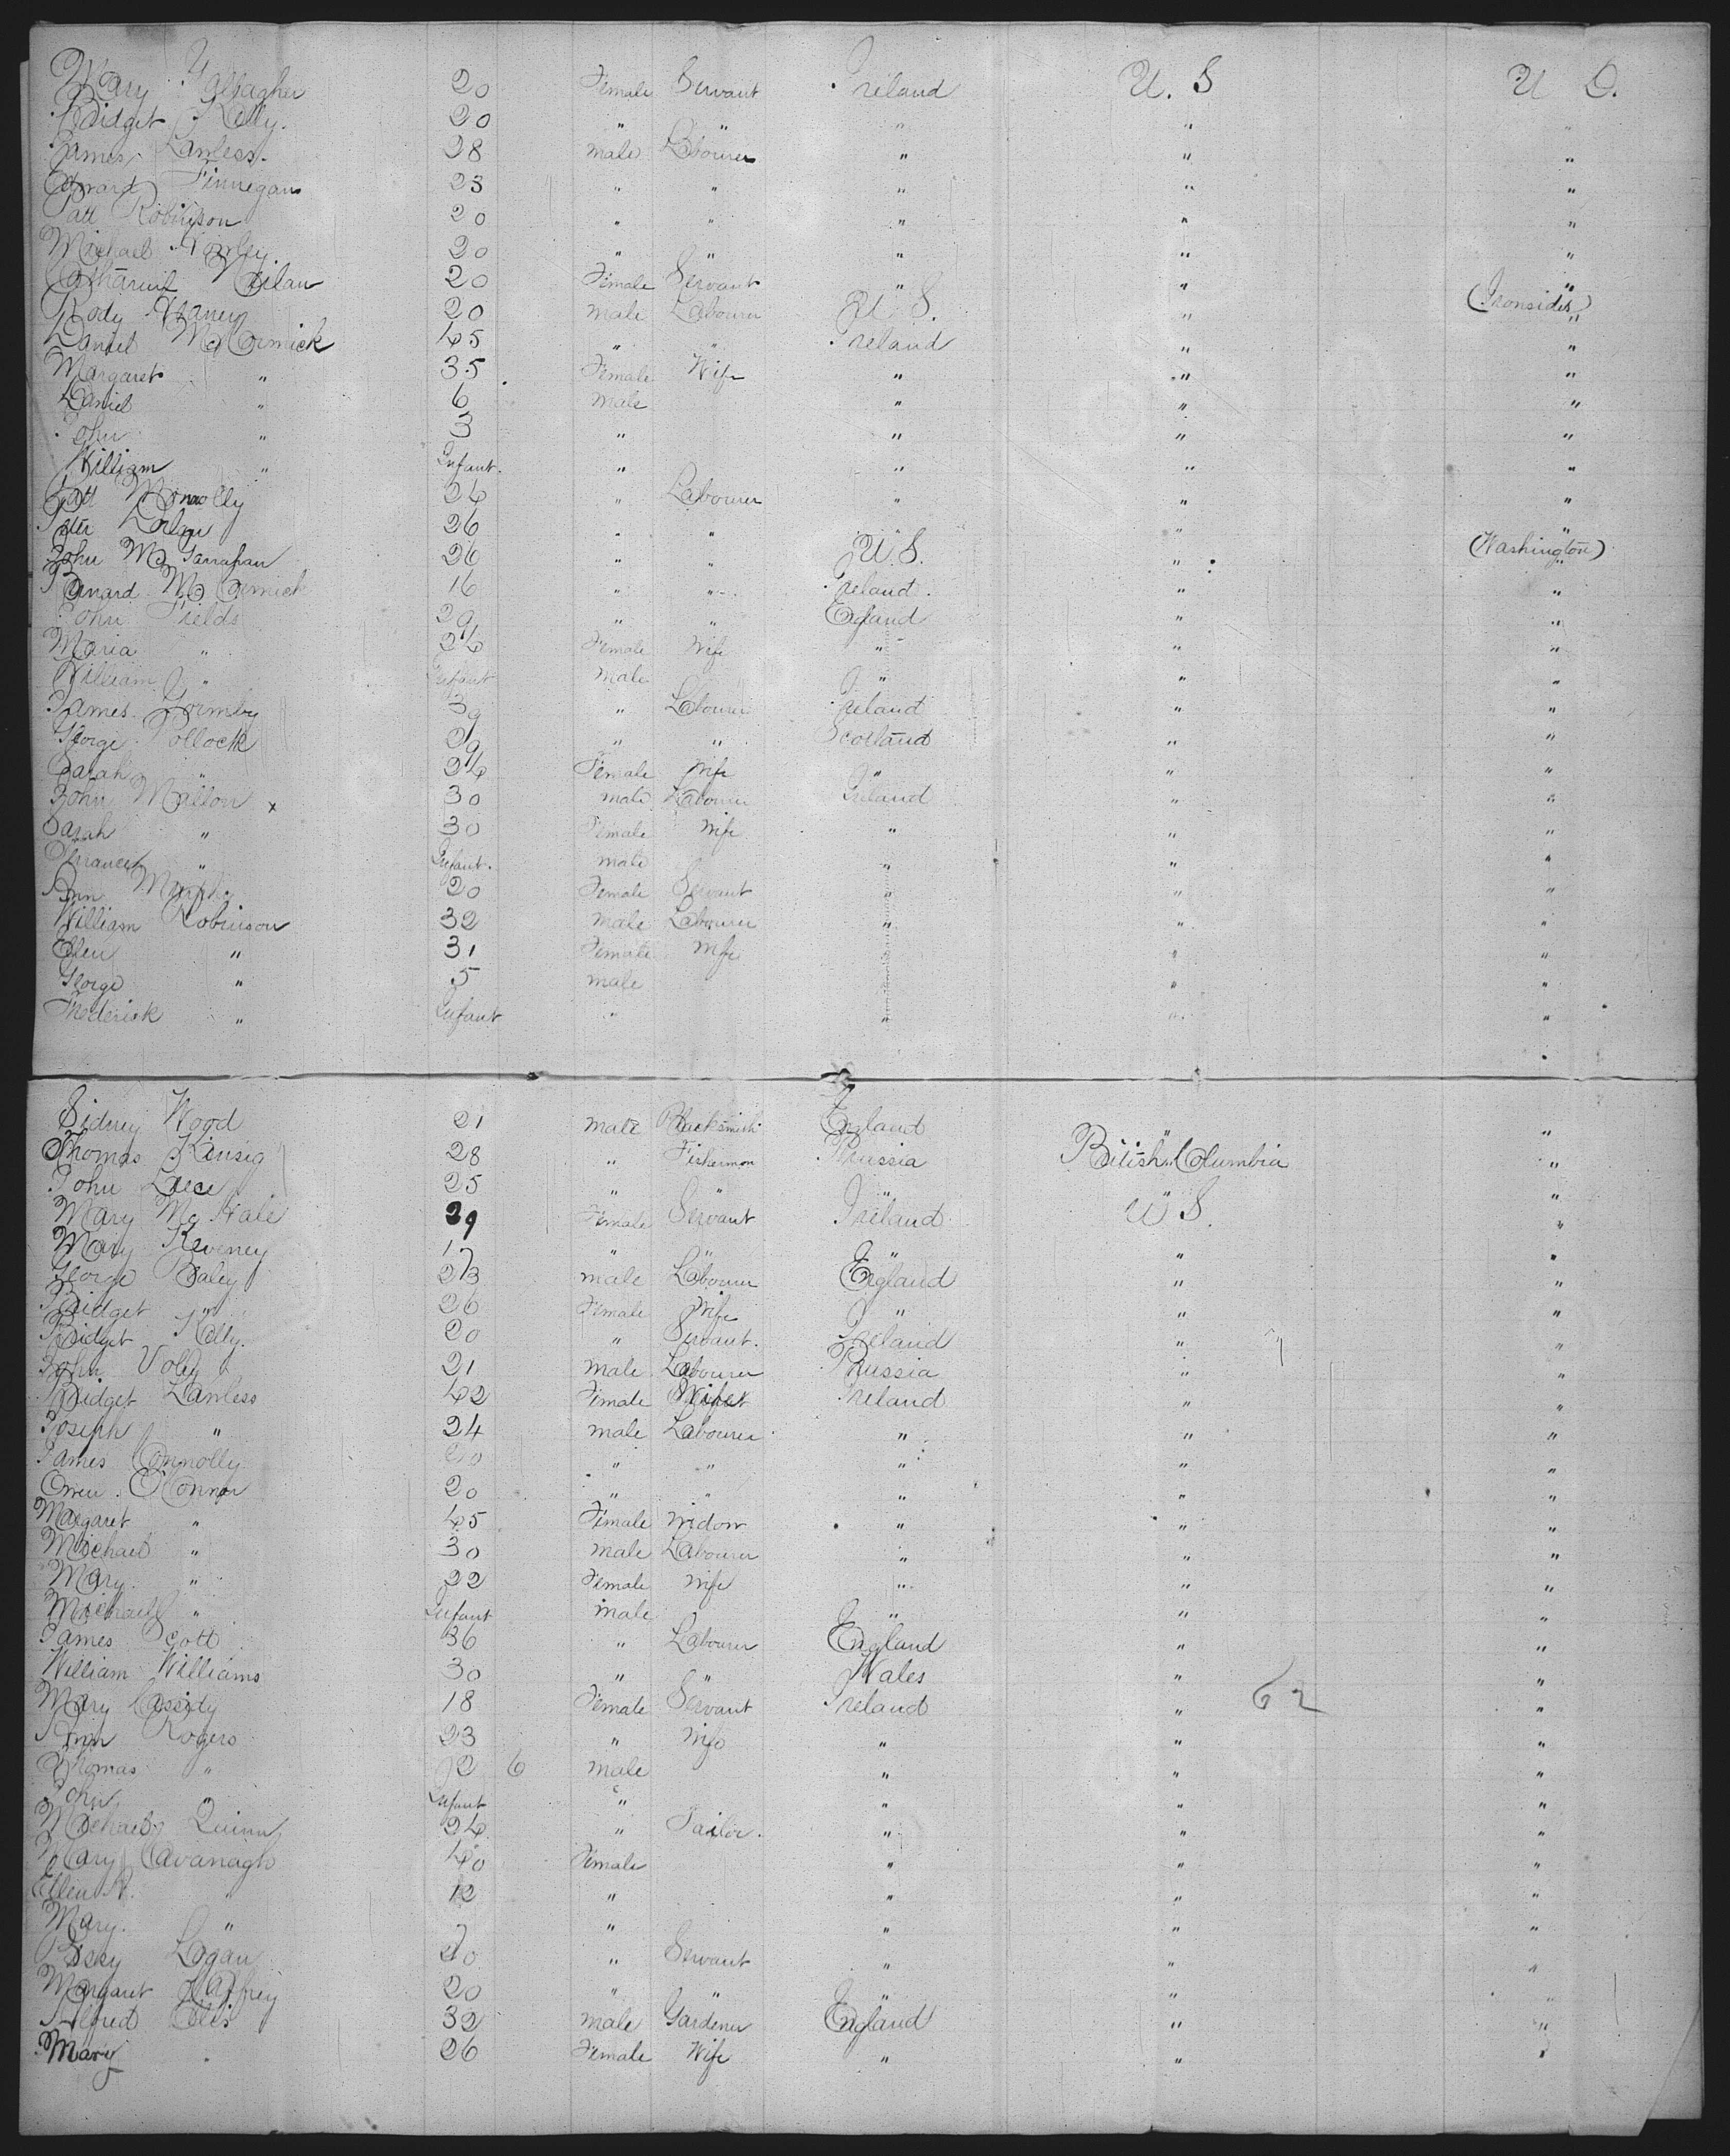 Mary Gallagher 20 Female Servant Ireland U. S U D.
Bridget Kelly. 20 " " " " "
James Lawless. 28 male Labourer " " "
Edward Finnegan 23 " " " " "
Patt Robinson 20 " " " " "
Michael 20 " " " " "
Catharine Neilan 20 Female Servant " " "
Rody 20 male Labourer U S. " (Ironsides) "
Daniel McCormick 45 " " Ireland " "
Margaret " 35 Female Wife " " "
Daniel " 6 male " " "
John " 3 " " " "
William " Infant. " " " "
Patt 24 " Labourer " " "
Peter Dolan 26 " " " " "
John McGarrahan 26 " " U. S. " (Washington) "
Barnard McCormick 16 " " Ireland. " "
John Fields 29 " " England " "
Maria " 24 Female Wife " " "
William " Infant male " " "
James Gormley 39 " Labourer Ireland " "
George Pollock 29 " " Scotland " "
Sarah " 24 Female Wife " " "
John Mallon x 30 male Labourer Ireland " "
Sarah " 30 Female Wife " " "
" Infant. male " " "
Ann 20 Female Servant " " "
William Robinson 32 male Labourer " " "
Ellen " 31 Female Wife " " "
George " 5 male " "
Frederick " Infant " " " "
Sidney Wood 21 male Blacksmith England " "
Thomas 28 " Fisherman Prussia British Columbia "
John 25 " " " " "
Mary McHale 29 Female Servant Ireland U S. "
Mary Keveney 17 " " " " "
George Daley 23 male Labourer England " "
Bridget " 26 Female Wife " " "
Bridget Kelly. 20 " Servant. Ireland " "
John 21 male Labourer Prussia " "
Bridget Lawless 42 Female Ireland " "
Joseph " 24 male Labourer " " "
James Connolly 20 " " " " "
Owen O'Connor 20 " " " " "
Margaret " 45 Female Widow " " "
Michael " 30 male Labourer " " "
Mary " 22 Female Wife " " "
Michael " Infant male " " "
James Scott 36 " Labourer England " "
William Williams 30 " " Wales " "
Mary Cassidy 18 Female Servant Ireland " 62 "
Ann Rogers 23 " Wife " " "
Thomas " 2 6 male " " "
John Infant " " " "
Michael Quinn 24 " Tailor. " " "
Mary Cavanagh 40 Female " " "
Ellen 12 " " " "
Mary. " 7 " " " "
Logan 20 " Servant " " "
Margaret 20 " " " " "
Alfred Ellis 32 male Gardener England " "
Mary 26 Female Wife " " "